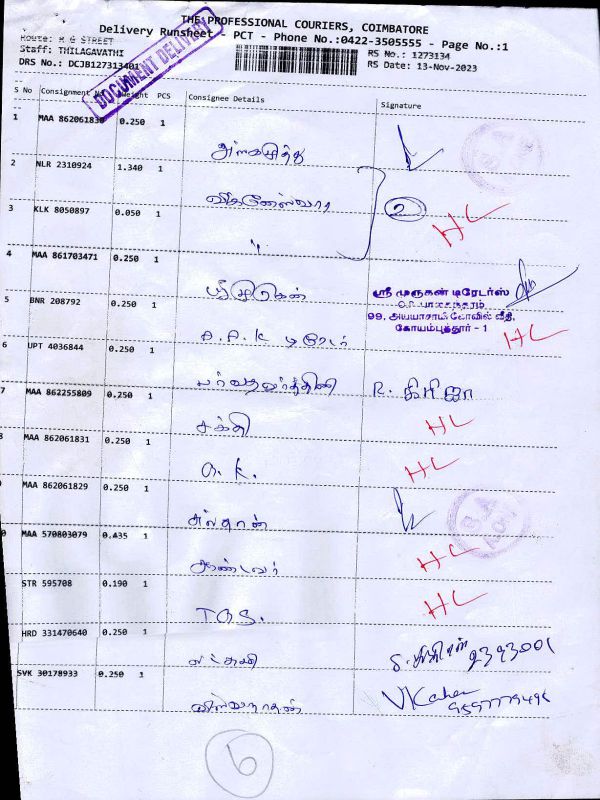 THE PROFESSIONAL COURIERS, COIMBATORE
Delivery Runsheet - PCT - Phone No.:0422-3505555 - Page No.:1
Route: M G STREET
RS No.: 1273134
Staff: THILAGAVATHI
RS Date: 13-Nov-2023
DRS No.: DCJB127313401
DOCUMENT DELIVERY
S No Consignment Weight PCS Consignee Details Signature
1 MAA 862061830 0.250 1
2 NLR 2310924 1.340 1
விக்னேஸ்வரா 2
3 KLK 8050897 0.050 1
" HL
4 MAA 861703471 0.250 1
ஸ்ரீ முருகன் ஸ்ரீ முருகன் டிரேடர்ஸ்
5 BNR 208792 0.250 1
99, அய்யாசாமி கோவில் வீதி,
கோயம்புத்தூர் - 1
A.P.K டிரேடர் HL
6 UPT 4036844 0.250 1
R. கிரிஜா
7 MAA 862255809 0.250 1
சக்தி HL
8 MAA 862061831 0.250 1
O.K. HL
MAA 862061829 0.250 1
சுல்தான்
0 MAA 570803079 0.435 1
ஆண்டவர் HL
STR 595708 0.190 1
T.O.S. HL
HRD 331470640 0.250 1
2393001
SVK 30178933 0.250 1
விஸ்வநாதன்
6